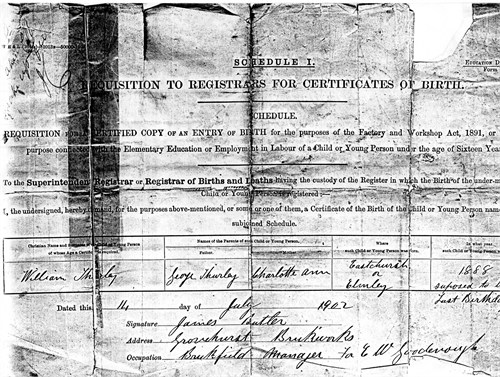 SCHEDULE I.
EDUCATION D
Form
REQUISITION TO REGISTRARS FOR CERTIFICATES OF BIRTH.
SCHEDULE.
REQUISITION FOR CERTIFIED COPY OF AN ENTRY OF BIRTH for the purposes of the Factory and Workshop Act, 1891, or
purpose connected with the Elementary Education or Employment in Labour of a Child or Young Person under the age of Sixteen Year
To the Superintendent Registrar or Registrar of Births and Deaths having the custody of the Register in which the Birth of the under-m
Child or Young Person is registered:
I, the undersigned, hereby demand, for the purposes above-mentioned, or some or one of them, a Certificate of the Birth of the Child or Young Person name
subjoined Schedule.
Christian Name and Surname of Child or Young Person
of whose Age a Certificate is required.
Names of the Parents of such Child or Young Person.
Father. Mother.
Where
such Child or Young Person was born.
In what year
William Thurley
George Thurley Charlotte Ann
Eastchurch
or
Elmley
1888
suposed to
Last Birthd
Dated this 14 day of July 1902
Signature James Butler
Address Grovehurst Brickworks
Occupation Brickfield Manager for E W Goodenough